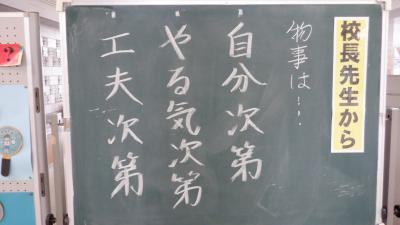 校長先生から
物事は!..
自分次第
やる気次第
工夫次第